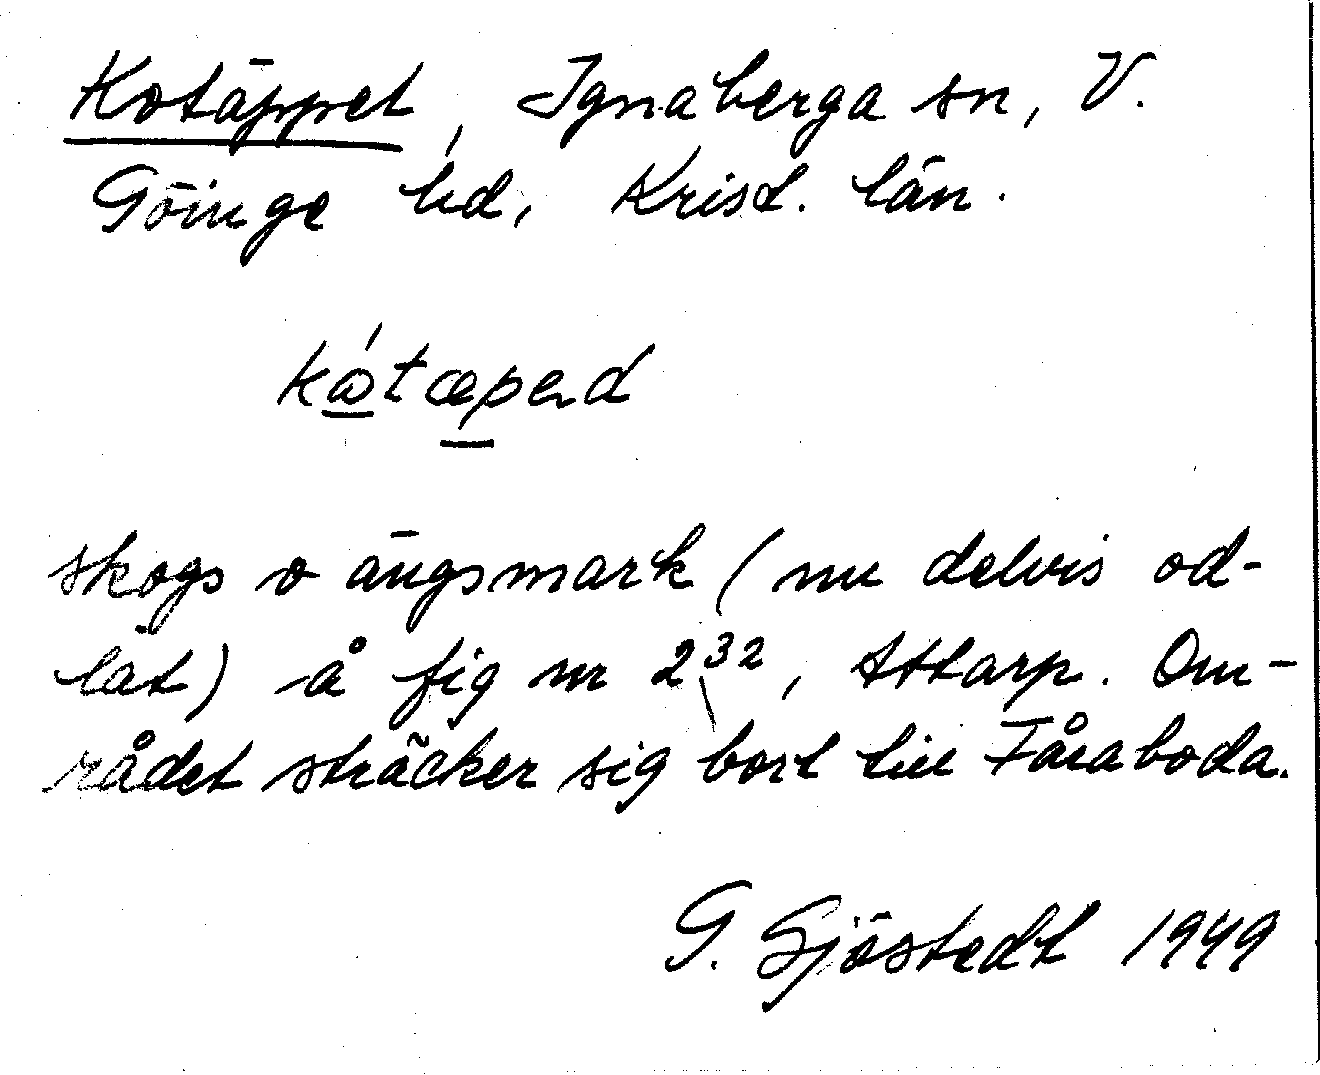 Kotäppet, Ignaberga sn, V.
Göinge hd, Krist. län.
skogs o ängsmark (nu delvis od-
lat) å fig nr 2³², Attarp. Om-
rådet sträcker sig bort till Fåraboda.
G. Sjöstedt 1949